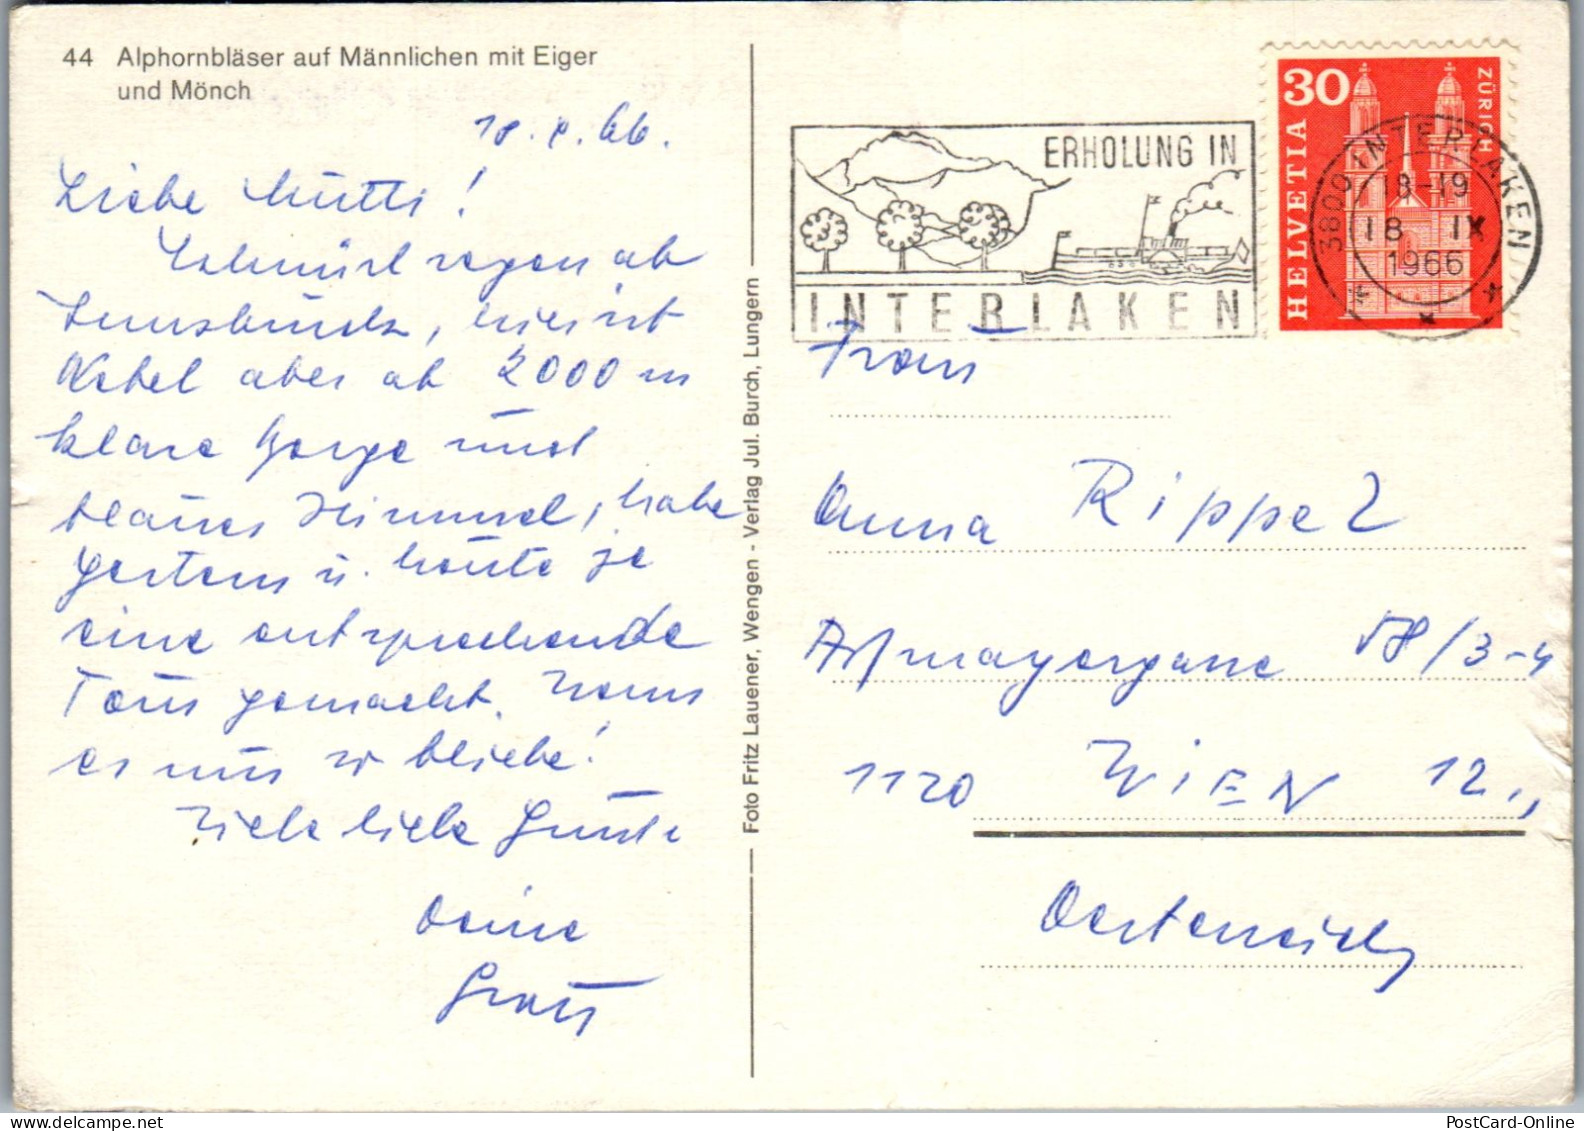 44 Alphornbläser auf Männlichen mit Eiger
und Mönch
18.9.66.
Liebe Mutti!
Schnürlregen ab
Innsbruck, hier ist
Nebel aber ab 2000 m
klare Berge und
blauer Himmel, habe
gestern u. heute je
eine entsprechende
Tour gemacht. Wenn
es nur so bliebe!
Viele liebe Grüße
Deine
Foto Fritz Lauener, Wengen - Verlag Jul. Burch, Lungern
ERHOLUNG IN
INTERLAKEN
30
ZÜRICH
HELVETIA
3800 INTERLAKEN
18-19
18 IX
1966
Frau
Anna Rippel
Aßmayergasse 58/3-4
1120 WIEN 12.,
Oesterreich
PostCard-Online